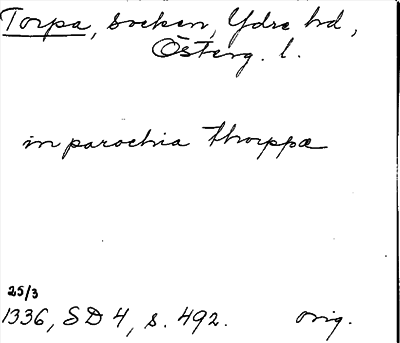 Torpa, socken, Ydre hd,
Österg. l.
in parochia thorppa
25/3
1336, SD 4, s. 492. orig.